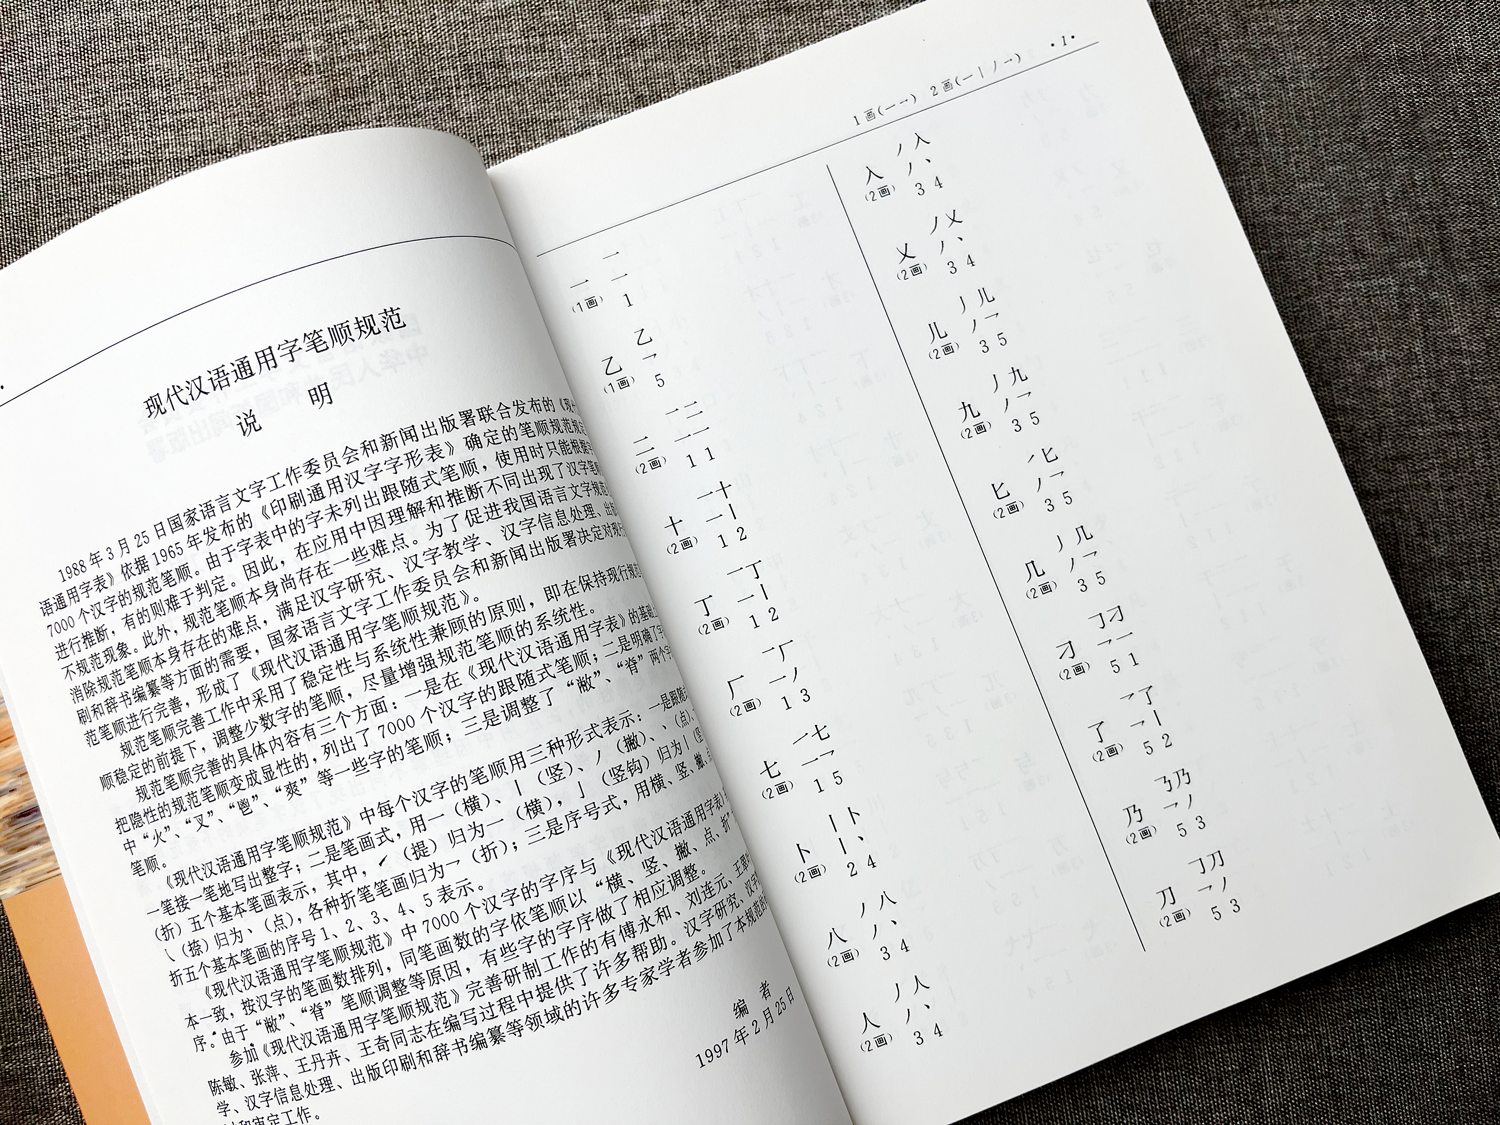 现代汉语通用字笔顺规范
说 明
1988年3月25日国家语言文字工作委员会和新闻出版署联合发布的《现代
语通用字表》依据1965年发布的《印刷通用汉字字形表》确定的笔顺规范规定
7000个汉字的规范笔顺。由于字表中的字未列出跟随式笔顺，使用时只能根据
进行推断，有的则难于判定。因此，在应用中因理解和推断不同出现了汉字笔顺
不规范现象。此外，规范笔顺本身尚存在一些难点。为了促进我国语言文字规范
消除规范笔顺本身存在的难点，满足汉字研究、汉字教学、汉字信息处理、出
刷和辞书编纂等方面的需要，国家语言文字工作委员会和新闻出版署决定对现行
范笔顺进行完善，形成了《现代汉语通用字笔顺规范》。
规范笔顺完善工作中采用了稳定性与系统性兼顾的原则，即在保持现行规范
顺稳定的前提下，调整少数字的笔顺，尽量增强规范笔顺的系统性。
规范笔顺完善的具体内容有三个方面：一是在《现代汉语通用字表》的基础上
把隐性的规范笔顺变成显性的，列出了7000个汉字的跟随式笔顺；二是明确了字
中“火”、“叉”、“鬯”、“爽”等一些字的笔顺；三是调整了“敝”、“脊”两个字
笔顺。
《现代汉语通用字笔顺规范》中每个汉字的笔顺用三种形式表示：一是跟随
一笔接一笔地写出整字；二是笔画式，用一（横）、丨（竖）、丿（撇）、丶（点）、
（折）五个基本笔画表示，其中，㇀（提）归为一（横），亅（竖钩）归为丨（竖
㇏（捺）归为丶（点），各种折笔笔画归为乛（折）；三是序号式，用横、竖、撇、点
折五个基本笔画的序号1、2、3、4、5表示。
《现代汉语通用字笔顺规范》中7000个汉字的字序与《现代汉语通用字表》
本一致，按汉字的笔画数排列，同笔画数的字依笔顺以“横、竖、撇、点、折”
序。由于“敝”、“脊”笔顺调整等原因，有些字的字序做了相应调整。
参加《现代汉语通用字笔顺规范》完善研制工作的有傅永和、刘连元、王翠
陈敏、张萍、王丹卉、王奇同志在编写过程中提供了许多帮助。汉字研究、汉字
学、汉字信息处理、出版印刷和辞书编纂等领域的许多专家学者参加了本规范
和审定工作。
编 者
1997年2月25日
1画(一乛) 2画(一丨丿乛) ·1·
一
一 一
(1画) 1
乙
乙 乛
(1画) 5
一二
二 一一
(2画) 1 1
一十
十 一丨
(2画) 1 2
一丁
丁 一丨
(2画) 1 2
一厂
厂 一丿
(2画) 1 3
一七
七 一乛
(2画) 1 5
丨卜
卜 丨丶
(2画) 2 4
丿八
八 丿丶
(2画) 3 4
丿人
人 丿丶
(2画) 3 4
丿入
入 丿丶
(2画) 3 4
丿乂
乂 丿丶
(2画) 3 4
丿儿
儿 丿乛
(2画) 3 5
丿九
九 丿乛
(2画) 3 5
丿匕
匕 丿乛
(2画) 3 5
丿几
几 丿乛
(2画) 3 5
㇆刁
刁 乛一
(2画) 5 1
乛了
了 乛丨
(2画) 5 2
㇡乃
乃 乛丿
(2画) 5 3
㇆刀
刀 乛丿
(2画) 5 3